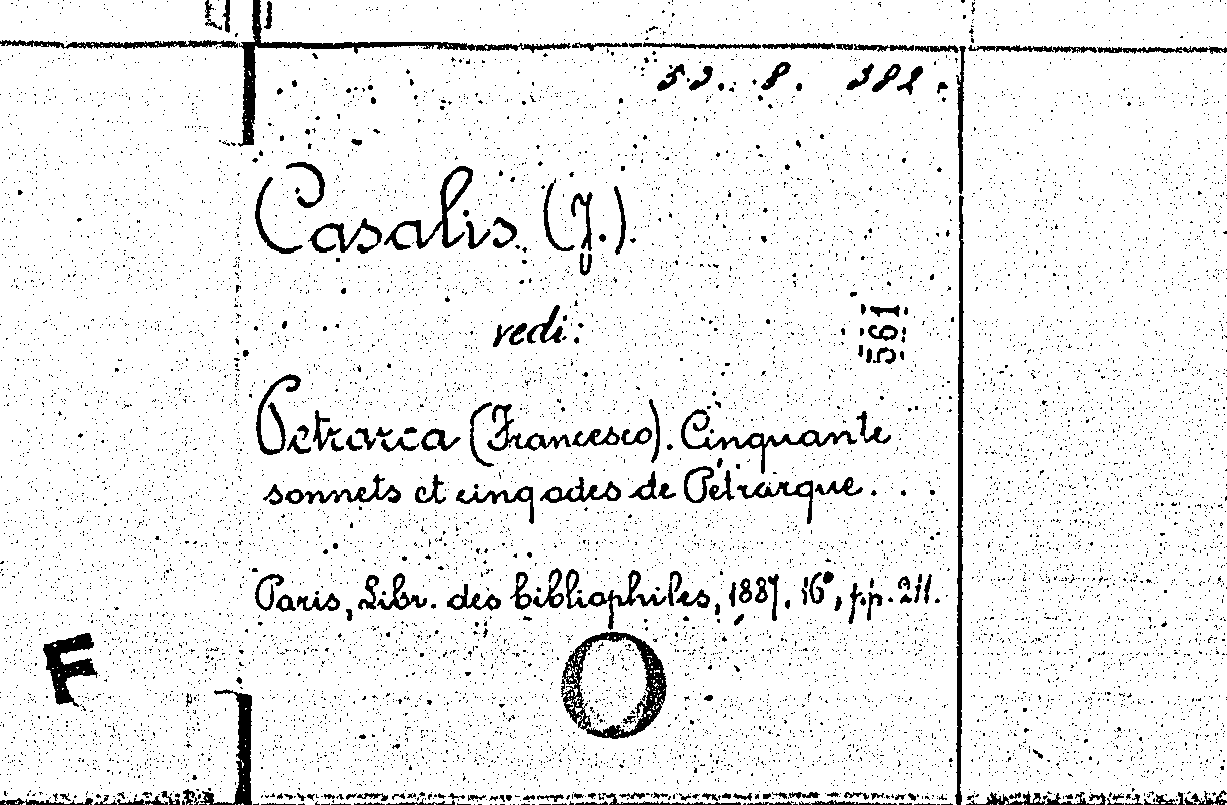 53. 8. 382.
Casalis (J.)
vedi:
561
Petrarca (Francesco). Cinquante
sonnets et cinq odes de Pétrarque...
Paris, Libr. des bibliophiles, 1887. 16°, pp. 211.
F